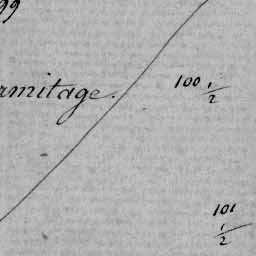 99
rmitage. 100 1/2
101
1/2